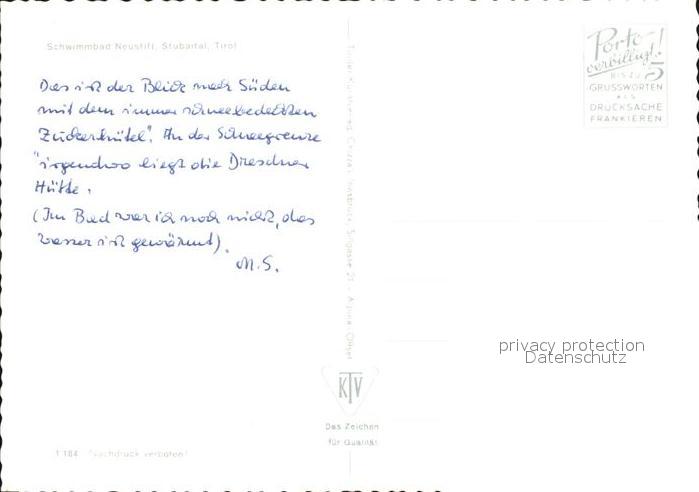 Schwimmbad Neustift, Stubaital, Tirol
Das ist der Blick nach Süden
mit dem immer schneebedeckten
"Zuckerhütel". An der Schneegrenze
irgendwo liegt die Dresdner
Hütte.
(Im Bad war ich noch nicht, das
Wasser ist gewärmt).
M.S.
Porto-
verbilligt!
BIS ZU 5
GRUSSWORTEN
ALS
DRUCKSACHE
FRANKIEREN
privacy protection
Datenschutz
KTV
Das Zeichen
für Qualität
T 184 Nachdruck verboten!